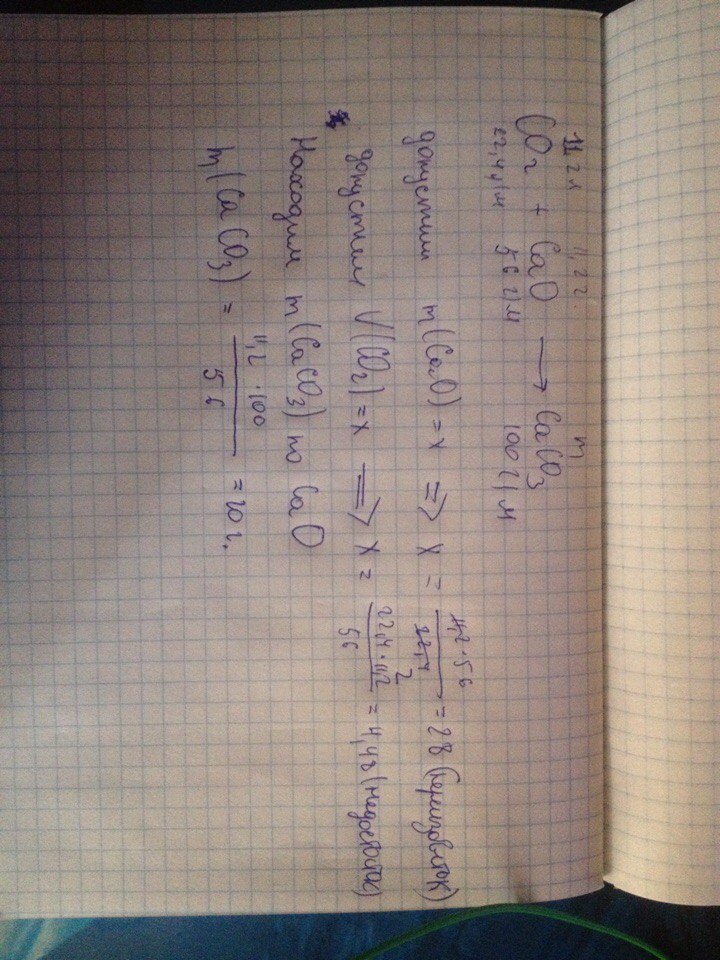 11,2 л 11,2 г. m
CO2 + CaO ⟶ CaCO3
22,4 л/м 56 г/м 100 г/м
допустим m(CaO) = x => x = 11,2·56/22,4 = 28
допустим V(CO2) = x => x = 22,4·11,2/56 = 4,48 (недостаток)
Находим m(CaCO3) по CaO
m(CaCO3) = 11,2·100/56 = 20 г.